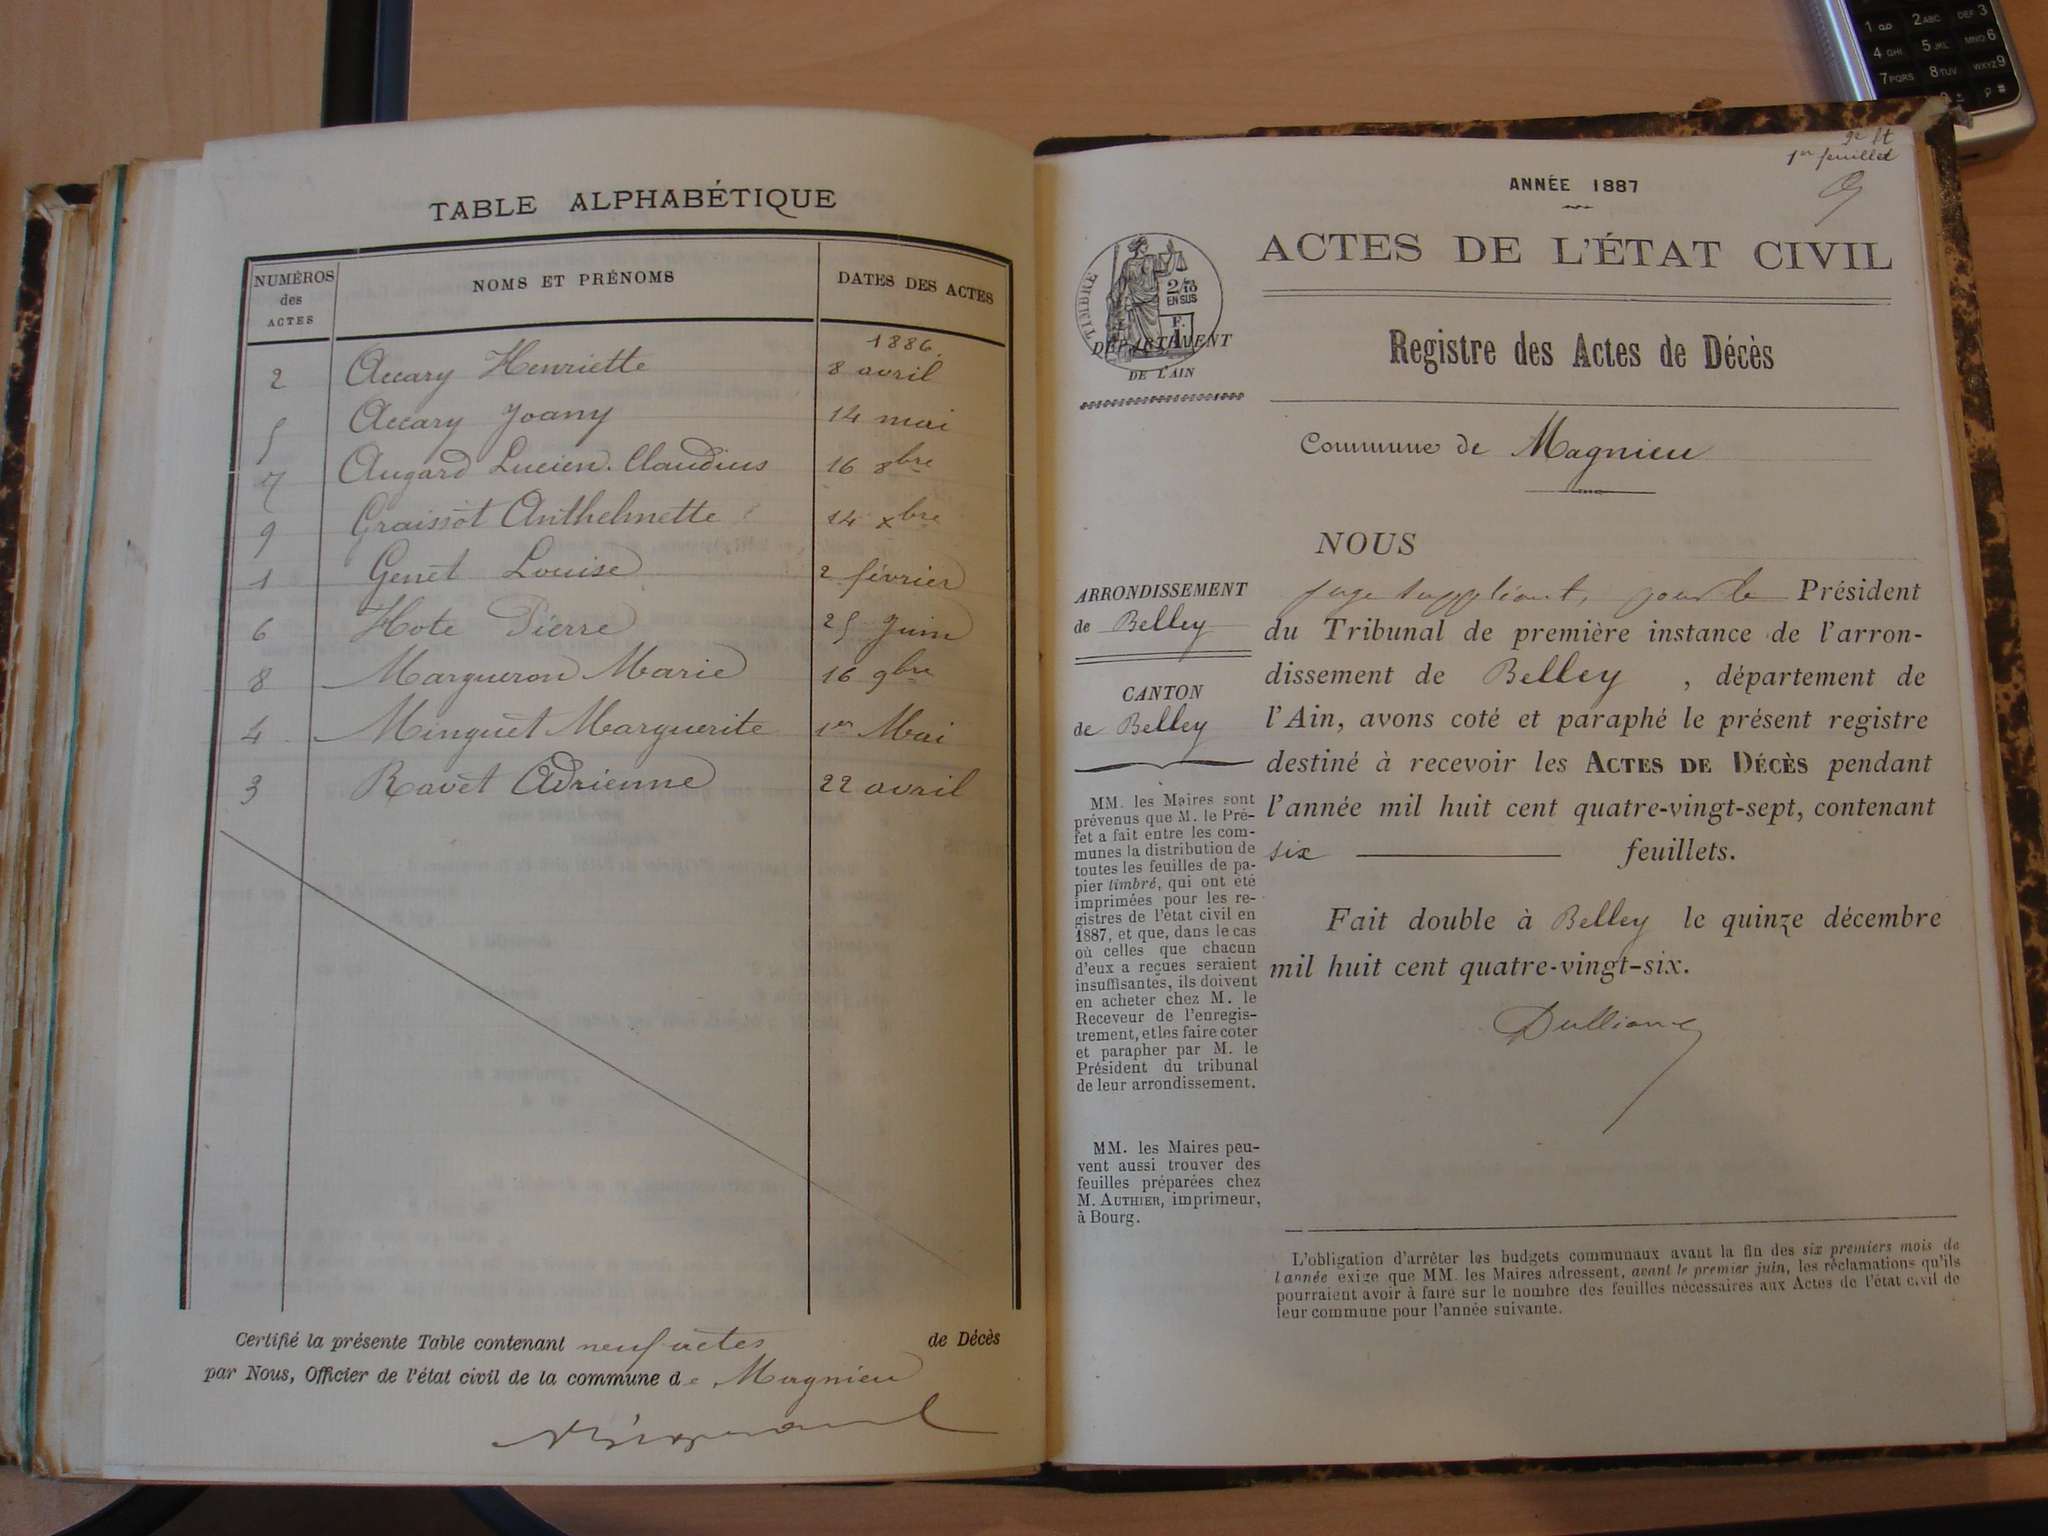 TABLE ALPHABÉTIQUE
NUMÉROS
des
ACTES
NOMS ET PRÉNOMS
DATES DES ACTES
1886.
2 Accary Henriette 8 avril
5 Accary Joany 14 mai
7 Augard Lucien. Claudius 16 8bre
9 Graissot Anthelmette 14 xbre
1 Genet Louise 2 février
6 Hote Pierre 25 Juin
8 Margueron Marie 16 9bre
4 Minguet Marguerite 1er Mai
3 Ravet Adrienne 22 avril
Certifié la présente Table contenant neuf actes de Décès
par Nous, Officier de l'état civil de la commune de Magnieu
1er feuillet
ANNÉE 1887
ACTES DE L'ÉTAT CIVIL
TIMBRE
2/10
EN SUS
F.
1
DÉPARTEMENT
DE L'AIN
Registre des Actes de Décès
Commune de Magnieu
NOUS
juge suppléant, pour le Président
du Tribunal de première instance de l'arron-
dissement de Belley, département de
l'Ain, avons coté et paraphé le présent registre
destiné à recevoir les ACTES DE DÉCÈS pendant
l'année mil huit cent quatre-vingt-sept, contenant
six feuillets.
Fait double à Belley le quinze décembre
mil huit cent quatre-vingt-six.
ARRONDISSEMENT
de Belley
CANTON
de Belley
MM. les Maires sont
prévenus que M. le Pré-
fet a fait entre les com-
munes la distribution de
toutes les feuilles de pa-
pier timbré, qui ont été
imprimées pour les re-
gistres de l'état civil en
1887, et que, dans le cas
où celles que chacun
d'eux a reçues seraient
insuffisantes, ils doivent
en acheter chez M. le
Receveur de l'enregis-
trement, et les faire coter
et parapher par M. le
Président du tribunal
de leur arrondissement.
MM. les Maires peu-
vent aussi trouver des
feuilles préparées chez
M. AUTHIER, imprimeur,
à Bourg.
L'obligation d'arrêter les budgets communaux avant la fin des six premiers mois de
l'année exige que MM. les Maires adressent, avant le premier juin, les réclamations qu'ils
pourraient avoir à faire sur le nombre des feuilles nécessaires aux Actes de l'état civil de
leur commune pour l'année suivante.
1 2 ABC DEF 3
4 GHI 5 JKL MNO 6
7 PQRS 8 TUV WXYZ 9